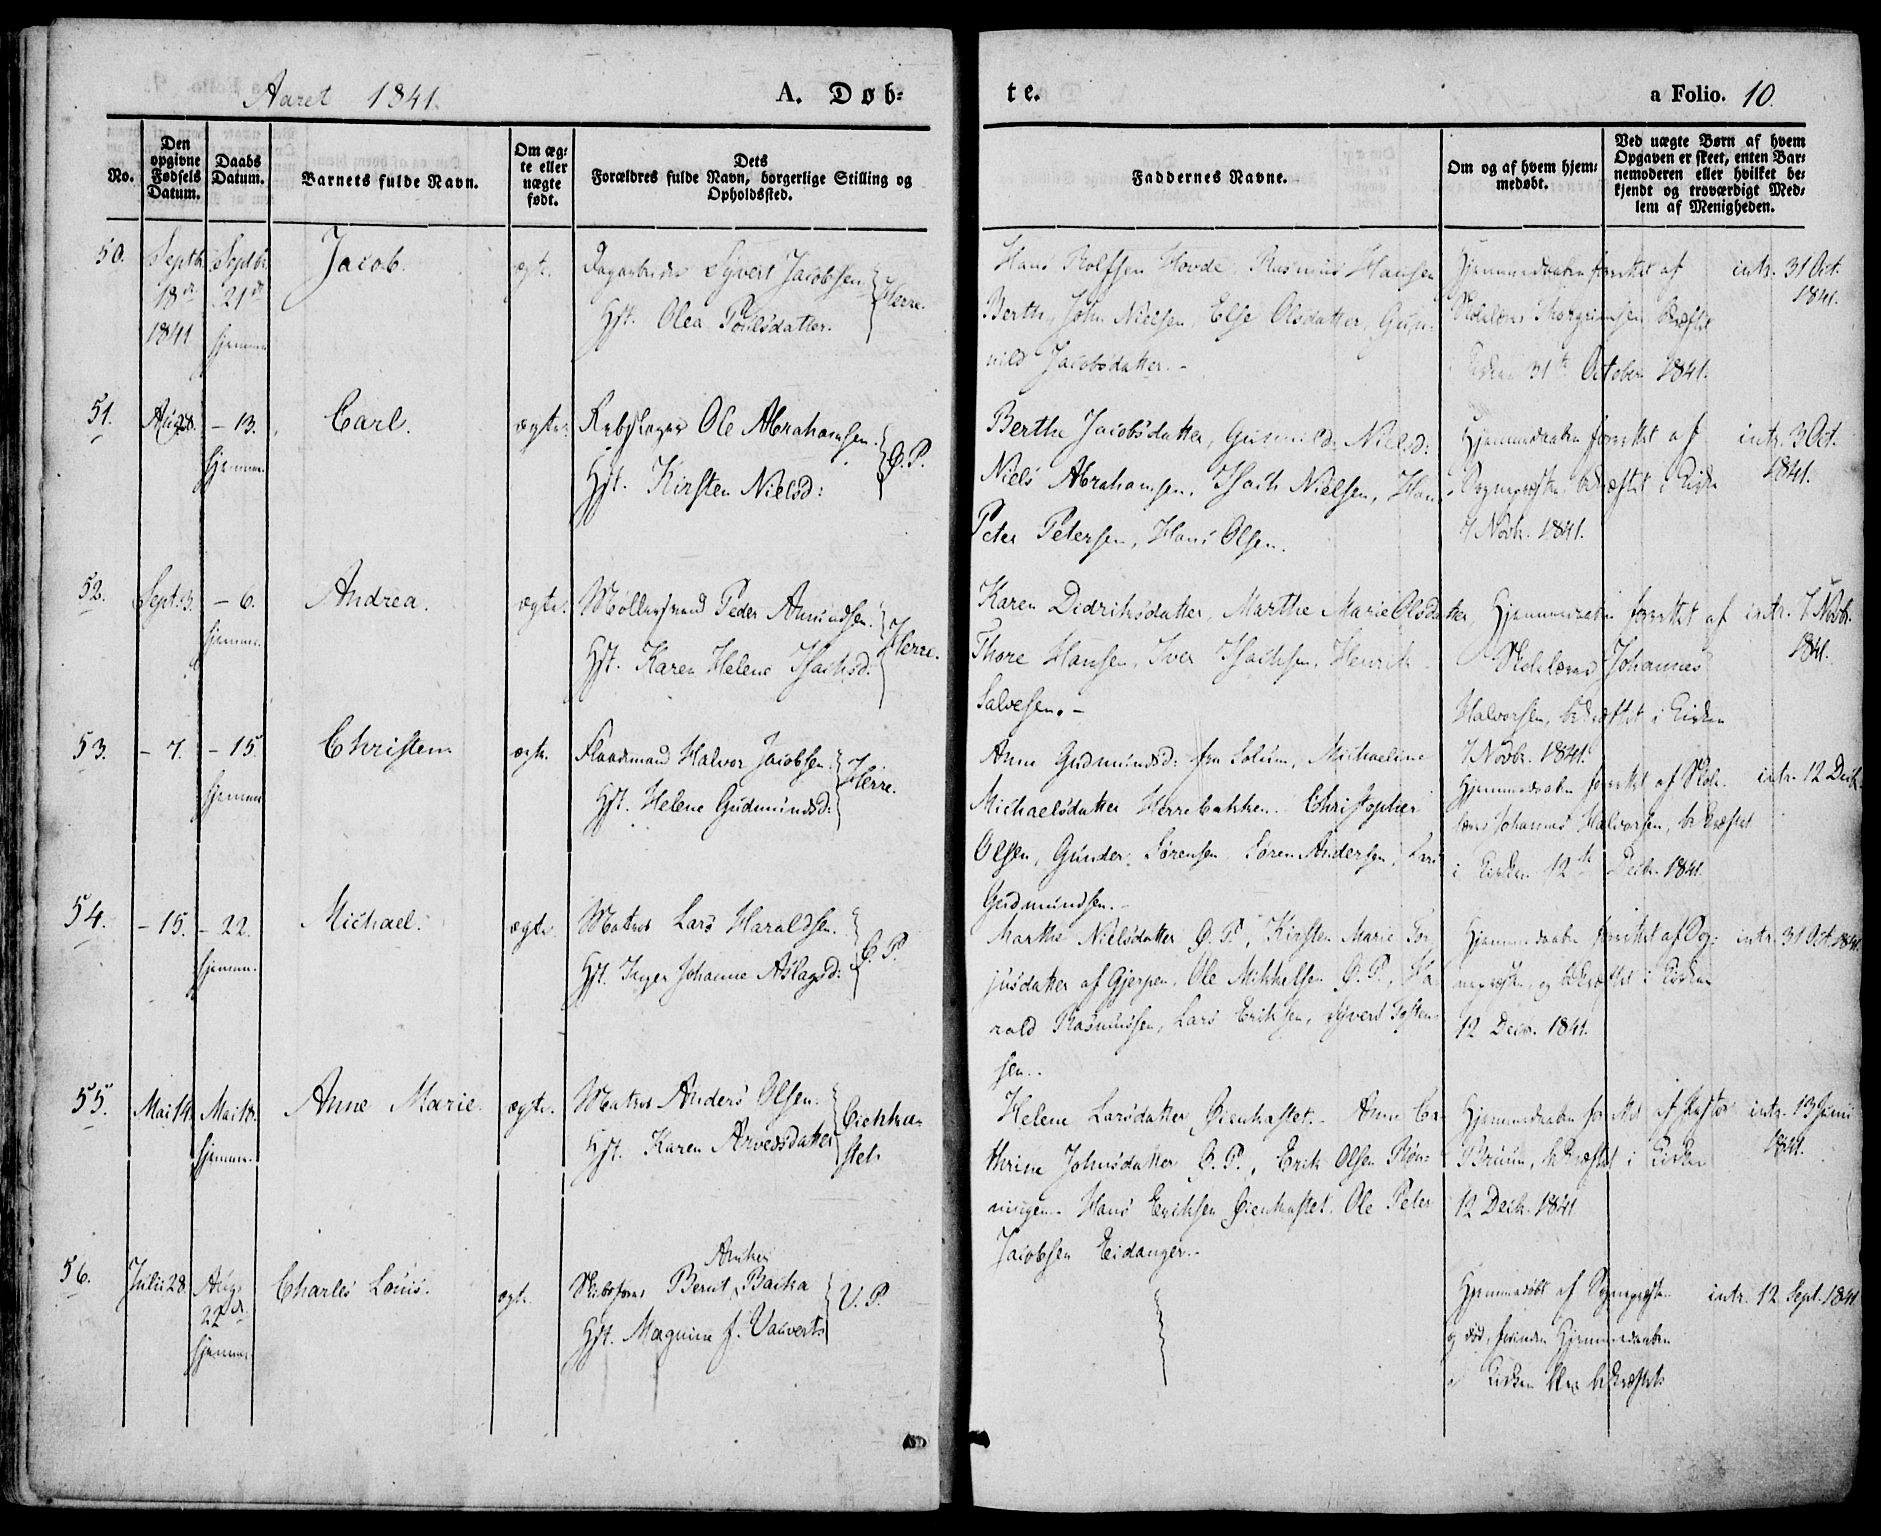 Aaret 1841.
A. Døb-
te.
a Folio. 10.
No.
Den opgivne Fødsels Datum.
Daabs Datum.
Barnets fulde Navn.
Om ægte eller uægte født.
Dets
Forældres fulde Navn, borgerlige Stilling og
Opholdssted.
Faddernes Navne.
Om og af hvem hjem-
medøbt.
Ved uægte Børn af hvem
Opgaven er skeet, enten Bar-
nemoderen eller hvilket be-
kjendt og troværdigt Med-
lem af Menigheden.
50.
Septbr. 18de 1841
Septbr. 21de hjemme
Jacob.
ægte.
Dagarbeider Syvert Jacobsen.
Hst. Olea Poulsdatter.
Herre.
Hans Rolfsen Hovde, Rasmus Hansen
Berthe, John Nielsen, Else Olsdatter, Gun-
nild Jacobsdatter.-
Hjemmedaaben forrettet af
Skolelærer Thorgrimsen, bekræftet
i Kirken 31te October 1841.
intr. 31 Oct.
1841.
51.
Aug 28.
- 13.
hjemme.
Carl.
ægte.
Rebslager Ole Abrahamsen.
Hst. Kirsten Nielsd:
Ø. P.
Berthe Jacobsdatter, Gunnild Nielsd:
Niels Abrahamsen, Isach Nielsen, Han-
Peter Petersen, Hans Olsen.
Hjemmedaaben forrettet af
Sognepresten, bekræftet i Kirken
7 Novbr. 1841.
intr. 3 Oct.
1841.
52.
Sept. 3.
- 6.
hjemme.
Andrea.
ægte.
Møllersvend Peder Amundsen.
Hst. Karen Helene Isachsd:
Herre.
Karen Didriksdatter, Marthe Marie Olsdatter,
Thore Hansen, Iver Isachsen, Henrik
Salvesen.-
Hjemmedaaben forrettet af
Skolelærer Johannes
Halvorsen, bekræftet i Kirken
7 Novbr. 1841.
intr. 7 Novbr.
1841.
53.
- 7.
- 15.
hjemme
Christen.
ægte.
Flaadmand Halvor Jacobsen.
Hst. Helene Gudmundsd:
Herre.
Anne Gudmundsd: fra Solum, Michaeline
Michaelsdatter Herrebakken. Christopher
Olsen, Gunder Sørensen, Søren Andersen, Lars
Gudmundsen.-
Hjemmedaaben forrettet af Skole-
lærer Johannes Halvorsen, bekræftet
i Kirken 12te Decbr. 1841.
intr. 12 Decbr.
54.
- 15.
- 22.
hjemme.
Michael.
ægte.
Matros Lars Haraldsen.
Hst. Inger Johanne Aslagsd:
Ø. P.
Marthe Nielsdatter Ø. P., Kirsten Marie Tor-
jusdatter af Gjerpen, Ole Mikkelsen Ø. P., Ha-
rald Rasmussen, Lars Eriksen, Syvert Tosten-
sen.
Hjemmedaaben forrettet af Sog-
nepresten, og bekræftet i Kirken
12 Decbr. 1841.
intr. 31 Oct. 1841.
55.
Mai 14.
Mai 18.
hjemme.
Anne Marie.
ægte.
Matros Anders Olsen.
Hst. Karen Arvedsdatter
Øienka-
stet.
Helene Larsdatter Øienkastet. Anne Ca-
thrine Johnsdatter Ø. P., Erik Olsen Røn-
ningen. Hans Eriksen Øienkastet. Ole Peter
Jacobsen Eidanger.-
Hjemmedaaben forrettet af Pastor
Bruun, bekræftet i Kirken
12 Decbr. 1841
intr. 13 Juni
1841.
56.
Julii 28.
Aug. 22de
hjemme.
Charles Louis.
ægte.
Anker
Skibsfører Bernt Backa
Hst. Maguine f. Valverts
V. P.
Hjemmedøbt af Sognepresten
og død, førinden Hjemmedaaben
i Kirken blev bekræftet.
intr. 12 Sept. 1841.